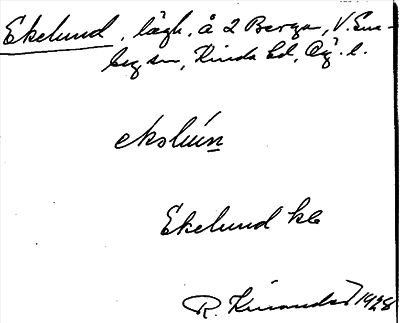 Ekelund, lägh. å 2 Berga, V. Ene-
by sn, Kinda hd, Ög. l.
ekslún
Ekelund kb
R. 1928